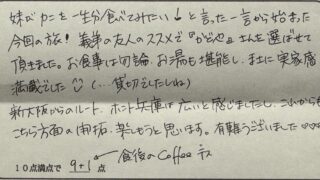 妹が カニを一生分食べてみたい！と言った一言から始まった
今回の旅！義弟の友人のススメで『かどや』さんを選ばせて
頂きました。お食事は勿論、お湯も堪能し、まさに実家感
満載でした (…貸切でしたしね)
新大阪からのルート、ホント兵庫は広いと感じましたし、これからも
こちら方面の開拓、楽しもうと思います。有難うございました♡♡♡
10点満点で 9+1 点 ← 食後のCoffee デス